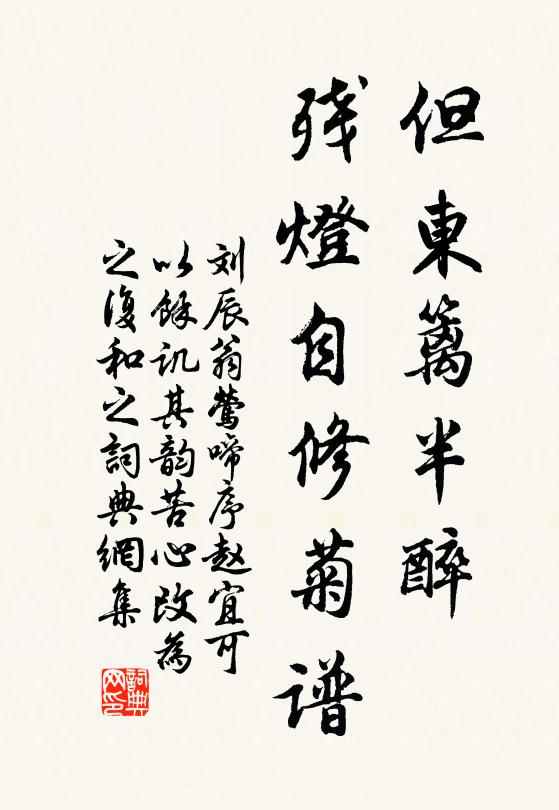 但東篱半醉
残燈自修菊谱
刘辰翁鶯啼序赵宜可
以餘讥其韵苦心改為
之復和之詞典網集
詞典网印